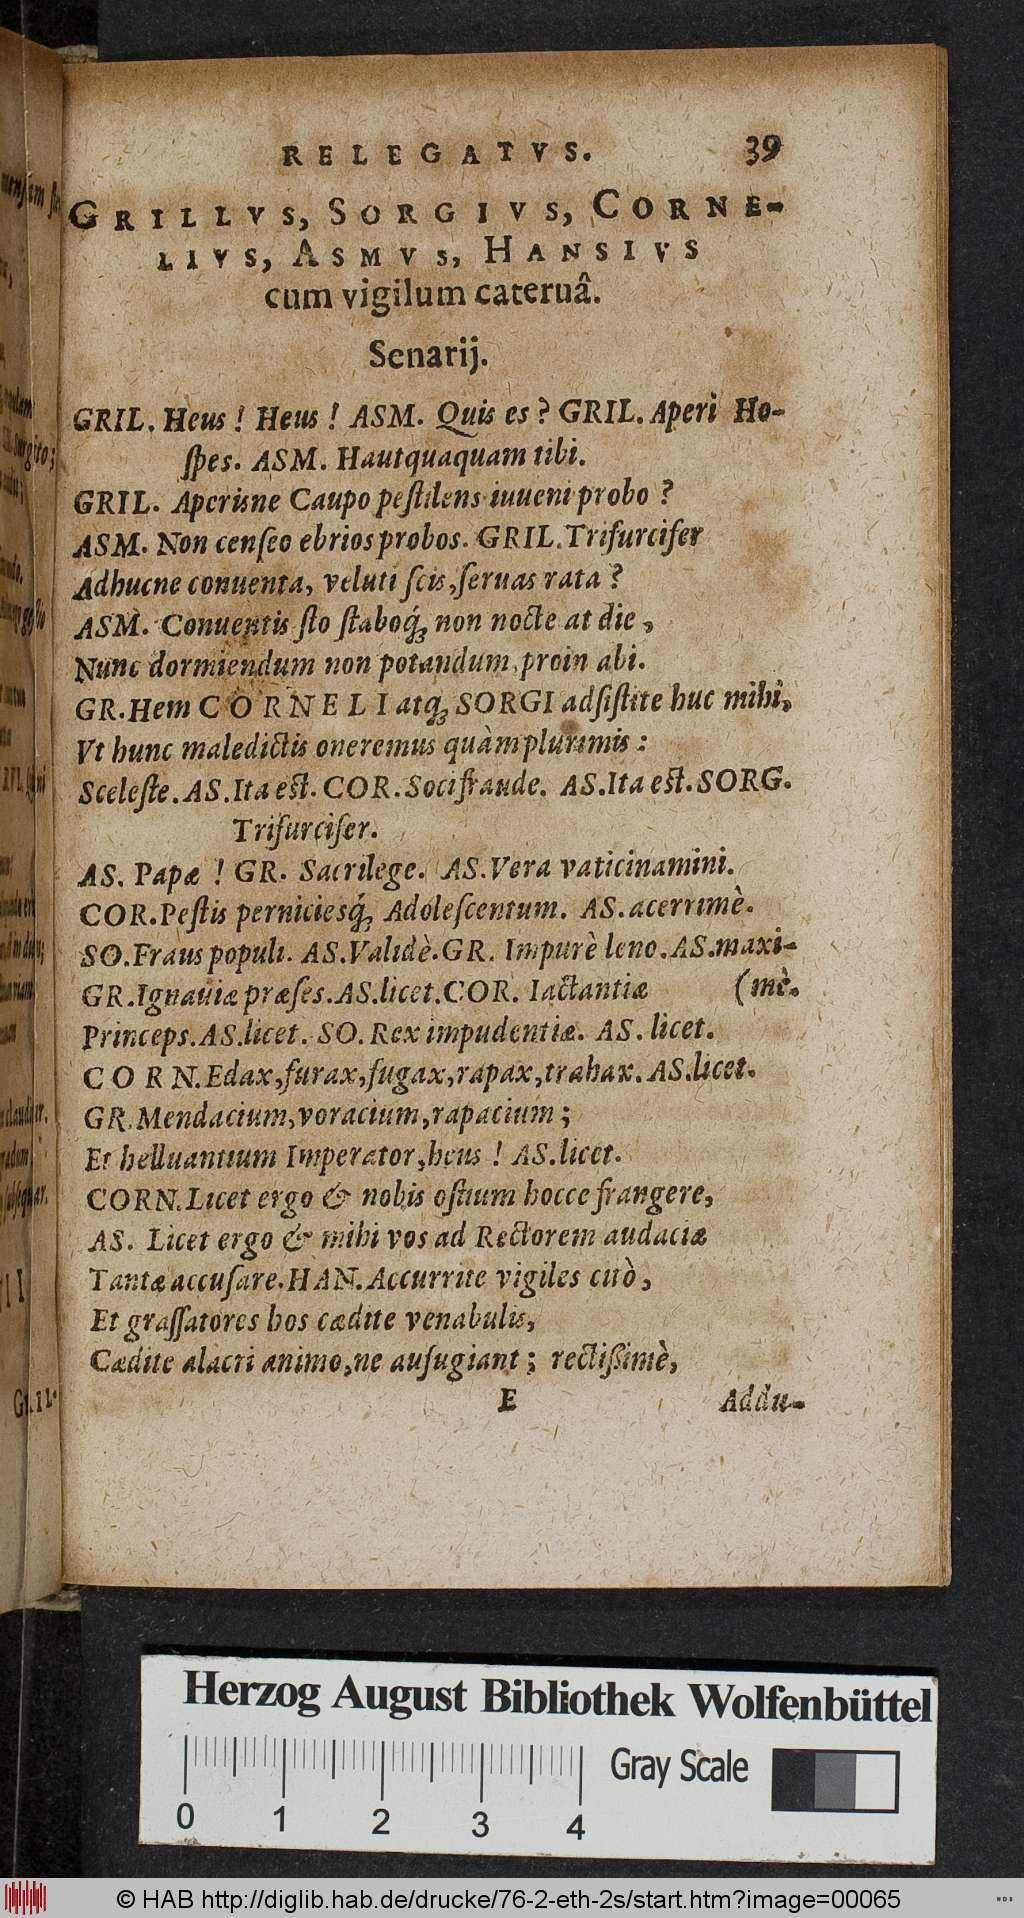 RELEGATVS. 39
GRILLVS, SORGIVS, CORNE-
LIVS, ASMVS, HANSIVS
cum vigilum cateruâ.
Senarij.
GRIL. Heus ! Heus ! ASM. Quis es ? GRIL. Aperi Ho-
ſpes. ASM. Hautquaquam tibi.
GRIL. Aperisne Caupo peſtilens iuueni probo ?
ASM. Non cenſeo ebrios probos. GRIL. Trifurcifer
Adhucne conuenta, veluti ſcis, ſeruas rata ?
ASM. Conuentis ſto ſtaboq́ꝫ non nocte at die,
Nunc dormiendum non potandum, proin abi.
GR. Hem CORNELI atqꝫ SORGI adſiſtite huc mihi,
Vt hunc maledictis oneremus quàm plurimis :
Sceleſte. AS. Ita eſt. COR. Socifraude. AS. Ita eſt. SORG.
Trifurcifer.
AS. Papæ ! GR. Sacrilege. AS. Vera vaticinamini.
COR. Peſtis perniciesq́ꝫ Adoleſcentum. AS. acerrimè.
SO. Fraus populi. AS. Validè. GR. Impurè leno. AS. maxi-
GR. Ignauiæ præſes. AS. licet. COR. Iactantiæ (mè.
Princeps. AS. licet. SO. Rex impudentiæ. AS. licet.
CORN. Edax, furax, fugax, rapax, trahax. AS. licet.
GR. Mendacium, voracium, rapacium ;
Et helluantium Imperator, heus ! AS. licet.
CORN. Licet ergo & nobis oſtium hocce frangere,
AS. Licet ergo & mihi vos ad Rectorem audaciæ
Tantæ accuſare. HAN. Accurrite vigiles citò,
Et graſſatores hos cædite venabulis,
Cædite alacri animo, ne aufugiant ; rectißimè,
E Addu-
Herzog August Bibliothek Wolfenbüttel
Gray Scale
0 1 2 3 4
© HAB http://diglib.hab.de/drucke/76-2-eth-2s/start.htm?image=00065